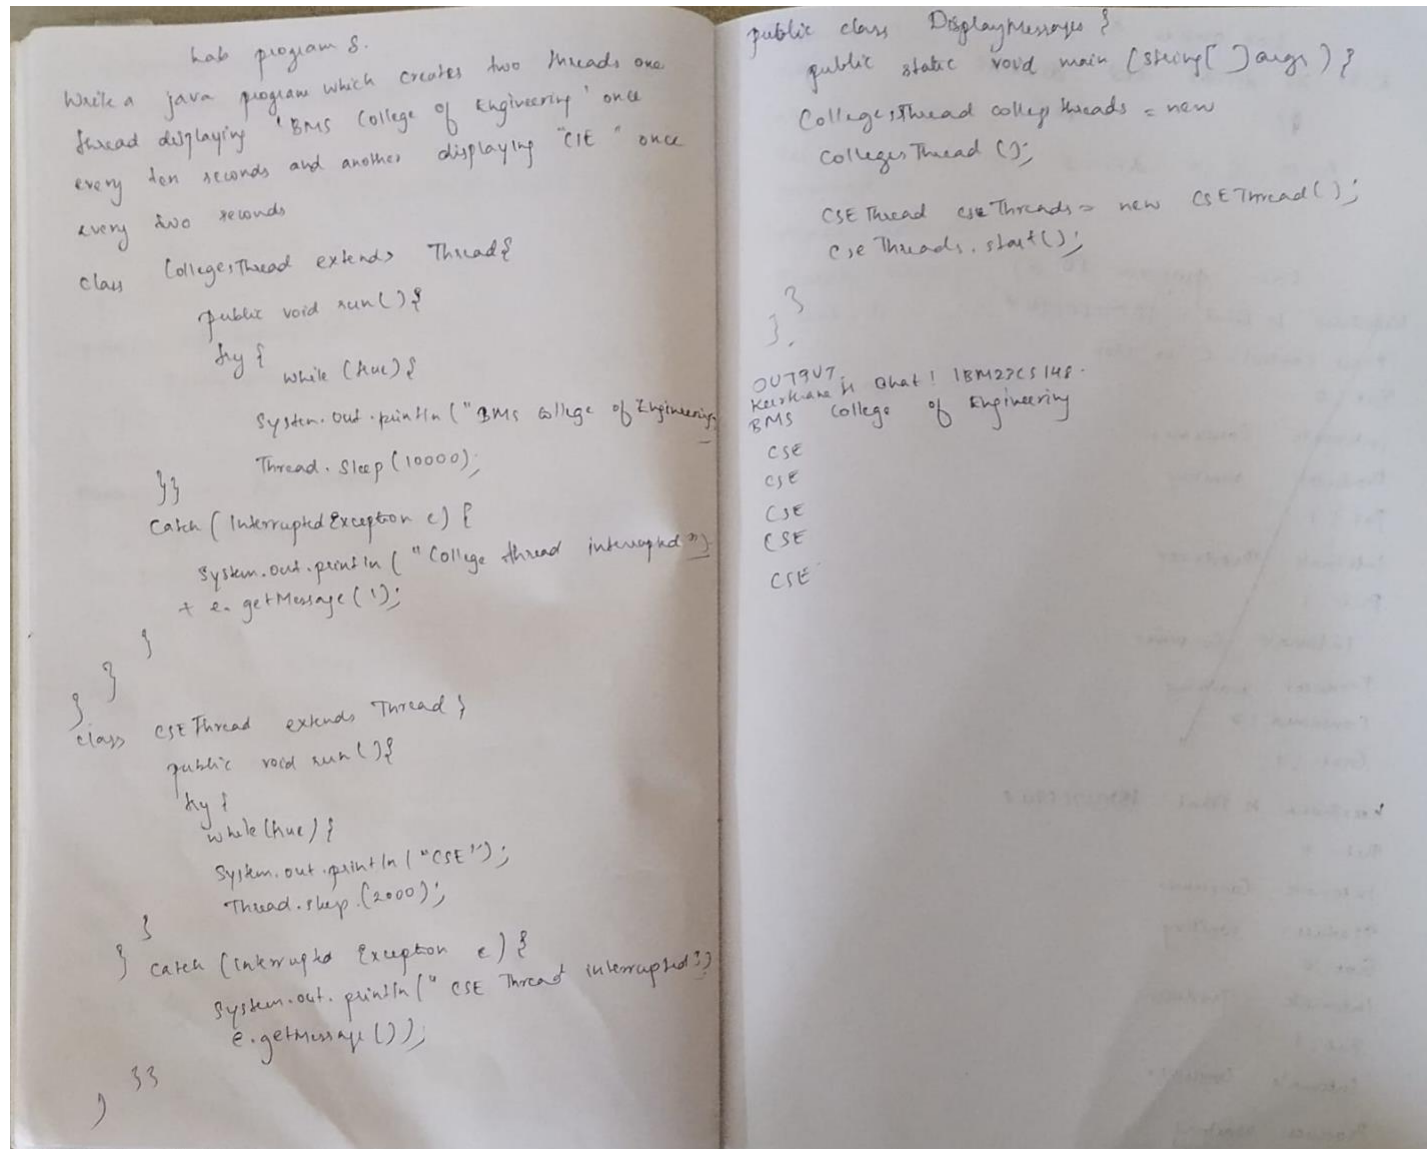 Lab program 8.
Write a java program which creates two threads one
thread displaying "BMS College of Engineering" once
every ten seconds and another displaying "CSE" once
every two seconds
class CollegesThread extends Thread{
public void run(){
try {
while (true) {
System.out.println("BMS College of Engineering
Thread.sleep(10000);
}}
Catch (Interrupted Exception e) {
System.out.println("College thread interrupted")
+ e.getMessage());
}
}
}
class CSEThread extends Thread {
public void run(){
try {
while(true) {
System.out.println("CSE");
Thread.sleep.(2000);
}
} catch (Interrupted Exception e) {
System.out.println("CSE Thread interrupted")
e.getMessage());
}}
}
public class DisplayMessages {
public static void main (String[] args) {
CollegesThread colleges threads = new
CollegesThread ();
CSEThread cseThreads = new CSEThread();
cseThreads.start();
}
}.
OUTPUT.
BMS College of Engineering
CSE
CSE
CSE
CSE
CSE